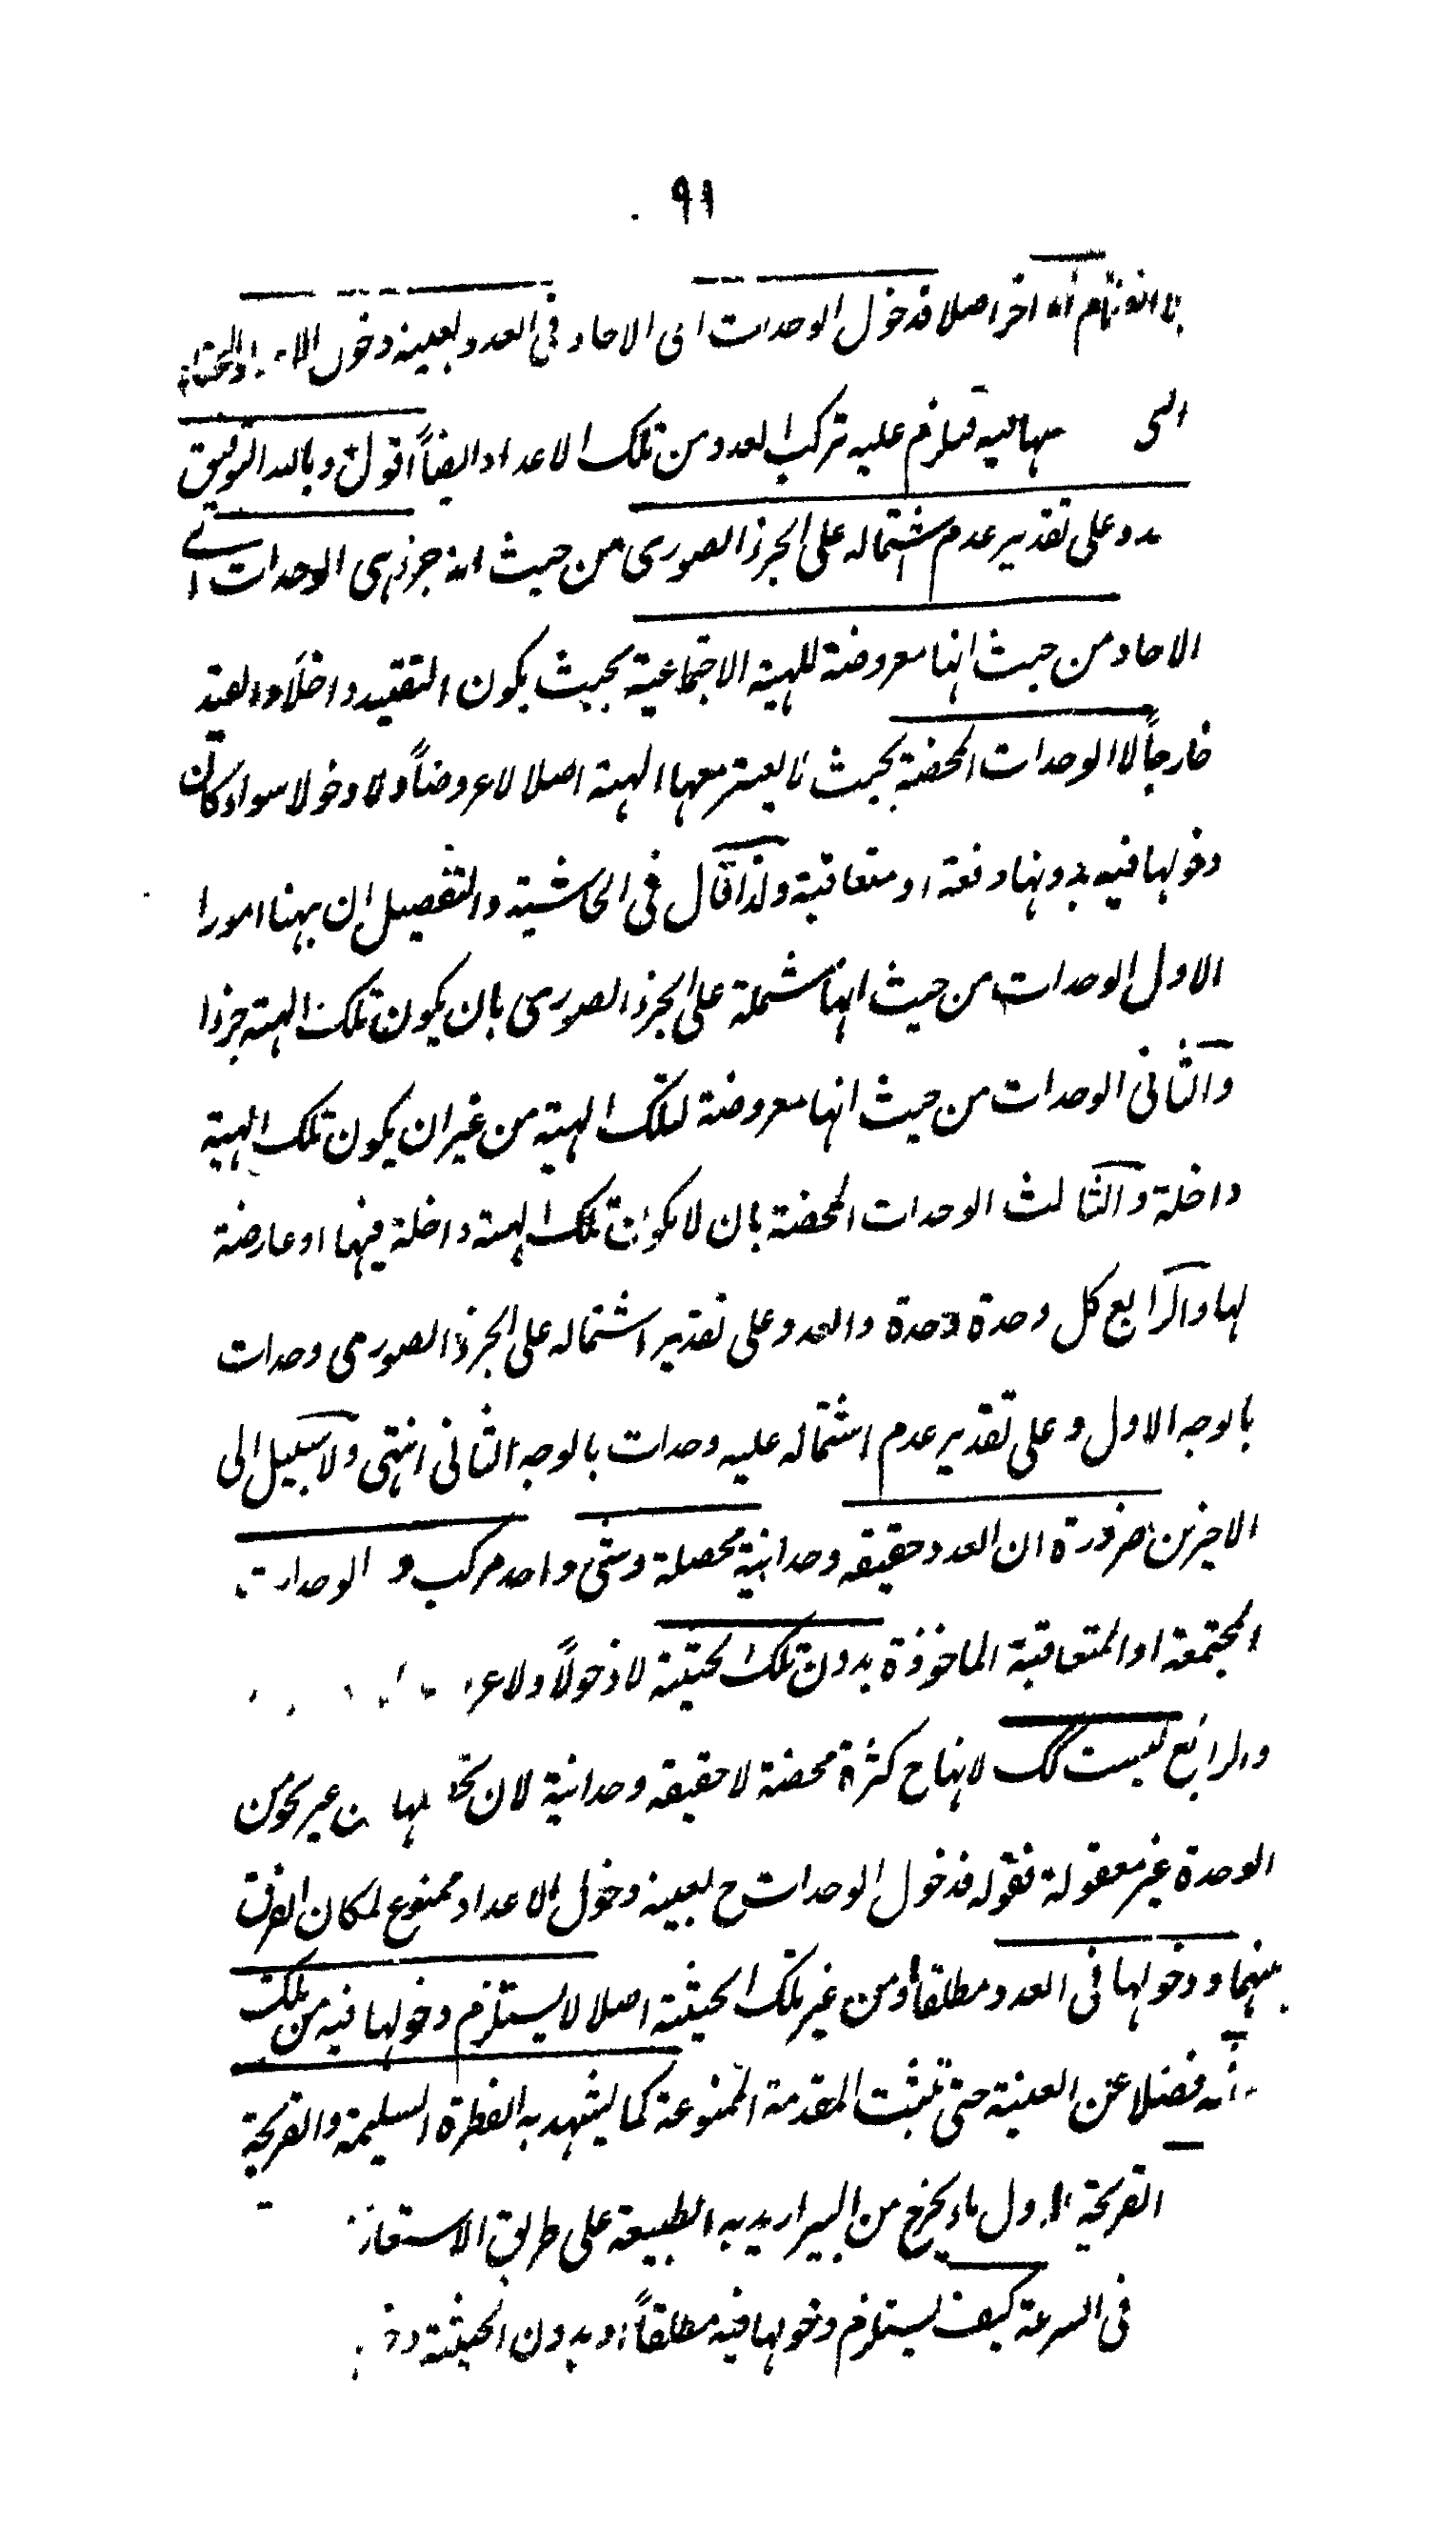 ٩١
اخر اصلا فدخول الوحدات اى الاحاد فى العدد بعينه دخول
فيلزم عليه تركب العدد من تلك الاعداد ايضاً اقول وبالله التوفيق
وعلى تقدير عدم اشتماله على الجزء الصورى من حيث انه جزئه هى الوحدات اے
الاحاد من حيث انها معروضة للهيئة الاجتماعية بحيث يكون التقييد داخلاً والقيد
خارجاً لا الوحدات المحضة بحيث لا يعتبر معها الهيئة اصلا لا عروضاً ولا دخولا سواء كان
دخولها فيه بدونها دفعة او متعاقبة ولذا قال فى الحاشية والتفصيل ان ههنا امورا
الاول الوحدات من حيث انها مشتملة على الجزء الصورى بان يكون تلك الهيئة جزءا
والثانى الوحدات من حيث انها معروضة لتلك الهيئة من غير ان يكون تلك الهيئة
داخلة والثالث الوحدات المحضة بان لا يكون تلك الهيئة داخلة فيها او عارضة
لها والرابع كل وحدة وحدة والعدد على تقدير اشتماله على الجزء الصورى وحدات
بالوجه الاول وعلى تقدير عدم اشتماله عليه وحدات بالوجه الثانى انتهى ولا سبيل الى
الاخيرين ضرورة ان العدد حقيقه وحدانية محصلة وشئ واحد مركب و الوحدات
المجتمعة او المتعاقبة الماخوذة بدون تلك الحيثية لا دخولاً ولا
والرابع ليست كك لانها ح كثرة محضة لا حقيقه وحدانية لان غير نحو من
الوحدة غير معقولة فقوله فدخول الوحدات ح بعينه دخول الاعداد ممنوع لمكان الفرق
بينهما ودخولها فى العدد مطلقا ومن غير تلك الحيثية اصلا لا يستلزم دخولها فيه من تلك
فضلا عن العينية حتى تثبت المقدمة الممنوعة كما يشهد به الفطرة السليمة والقريحة
القريحة اول ماء يخرج من البير اريد به الطبيعة على طريق الاستعارة
فى السرعة كيف يستلزم دخولها فيه مطلقاً او بدون الحيثية